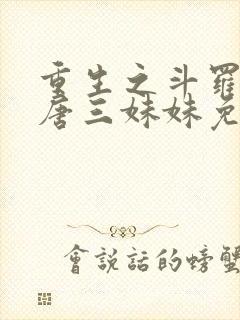 重生之斗羅
唐三妹妹免
會説話的螃蟹